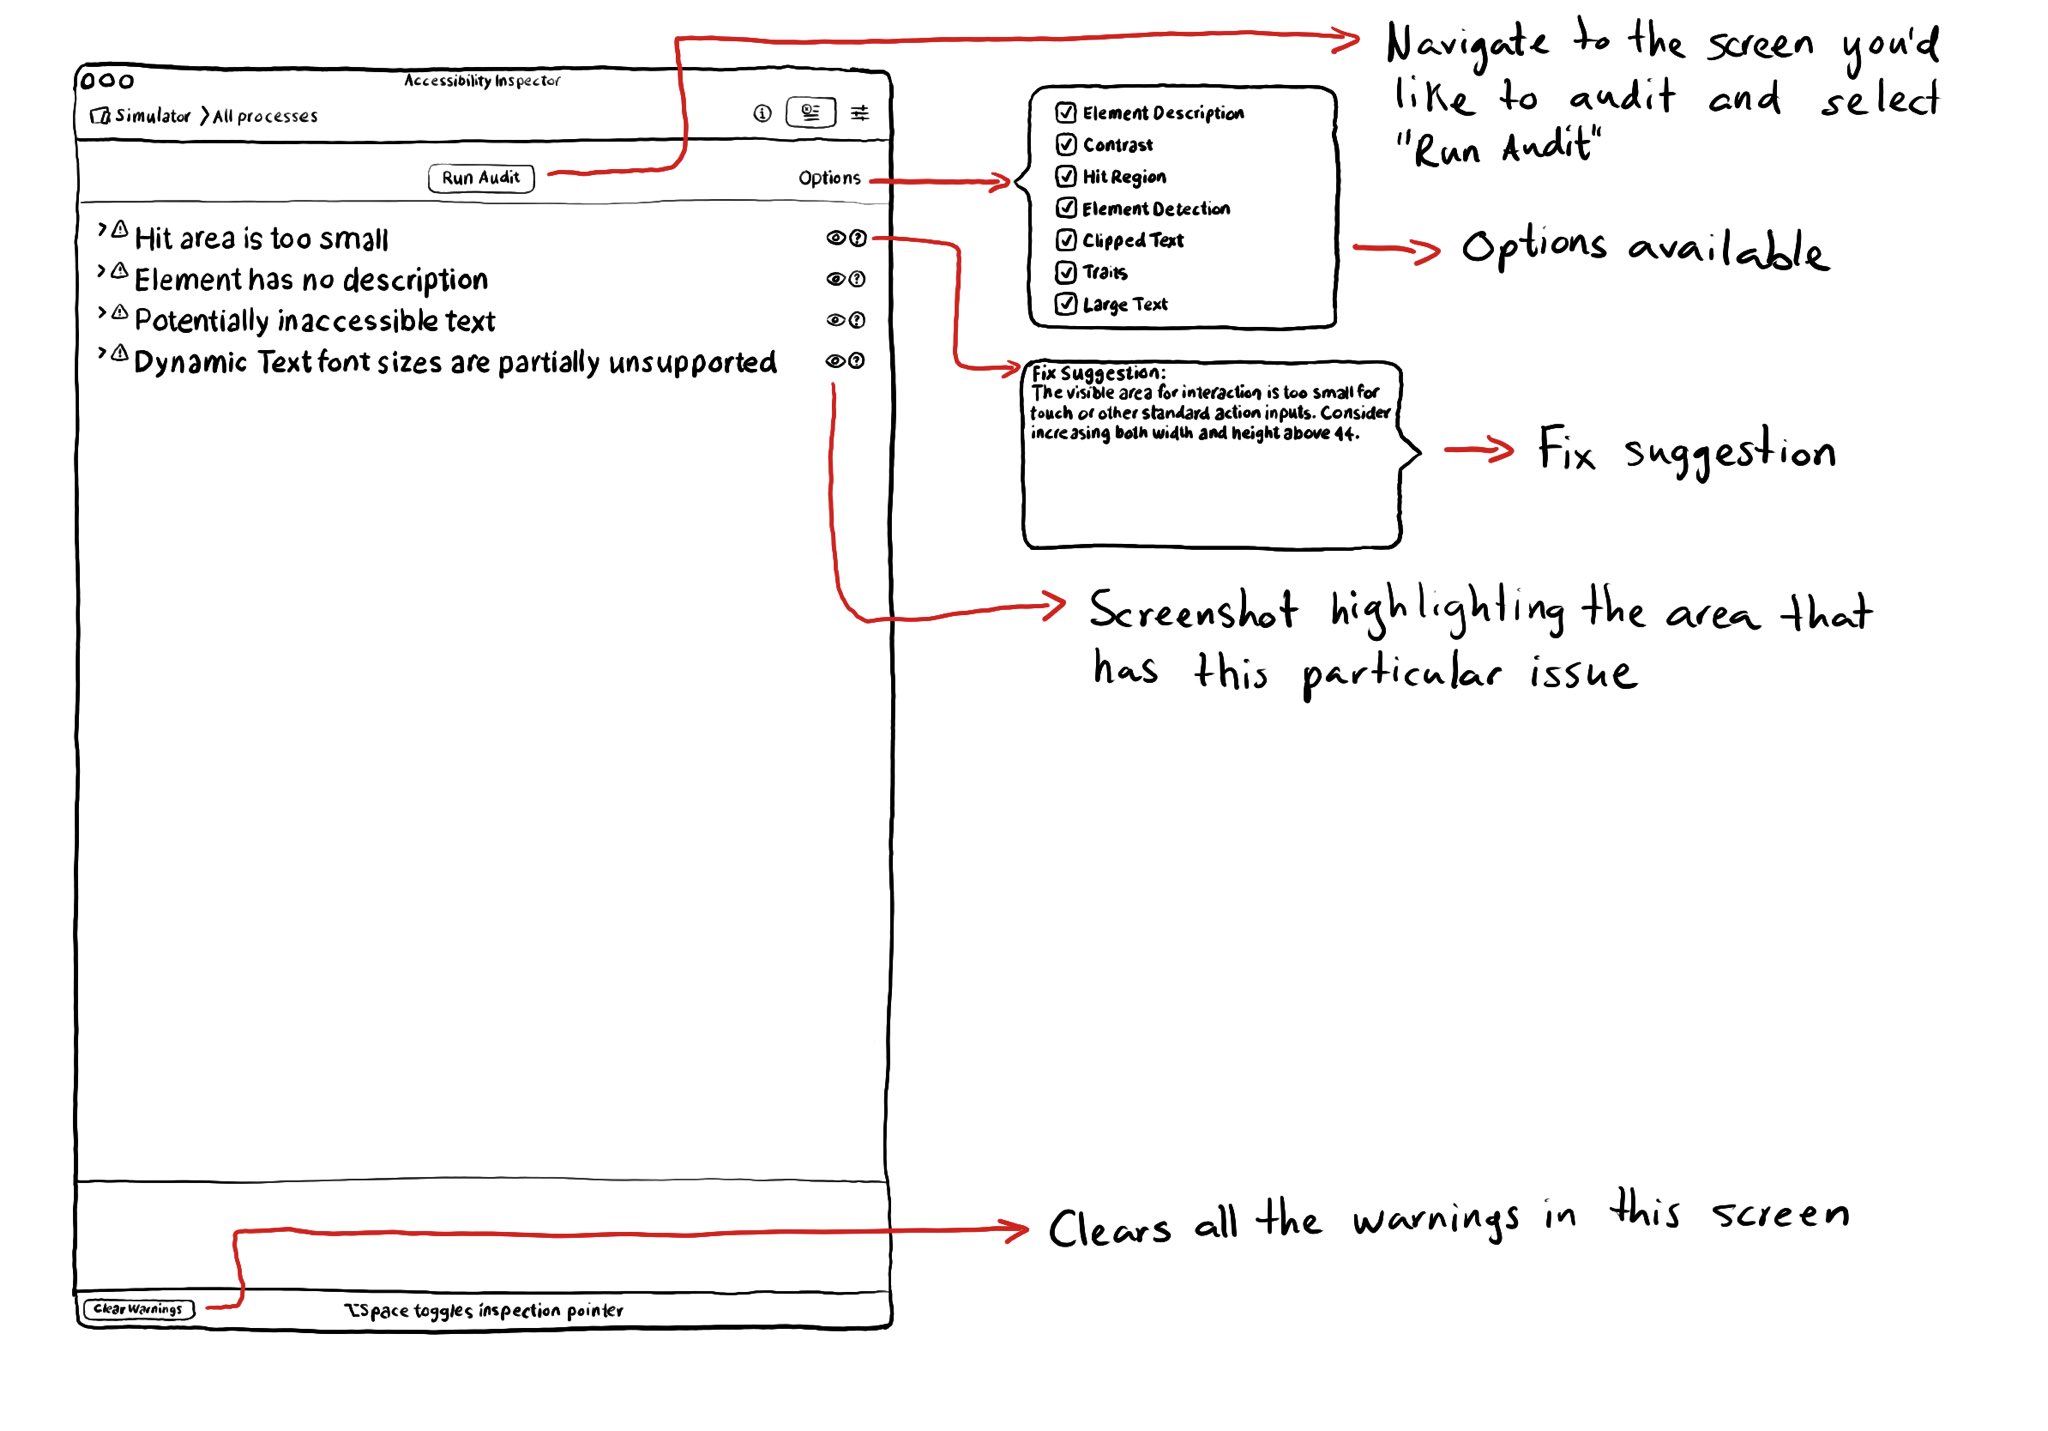 Accessibility Inspector
Simulator > All processes
Run Audit
Options
Hit area is too small
Element has no description
Potentially inaccessible text
Dynamic Text font sizes are partially unsupported
Clear Warnings
⌥Space toggles inspection pointer
Navigate to the screen you'd
like to audit and select
"Run Audit"
Element Description
Contrast
Hit Region
Element Detection
Clipped Text
Traits
Large Text
Options available
Fix Suggestion:
The visible area for interaction is too small for
touch or other standard action inputs. Consider
increasing both width and height above 44.
Fix suggestion
Screenshot highlighting the area that
has this particular issue
Clears all the warnings in this screen